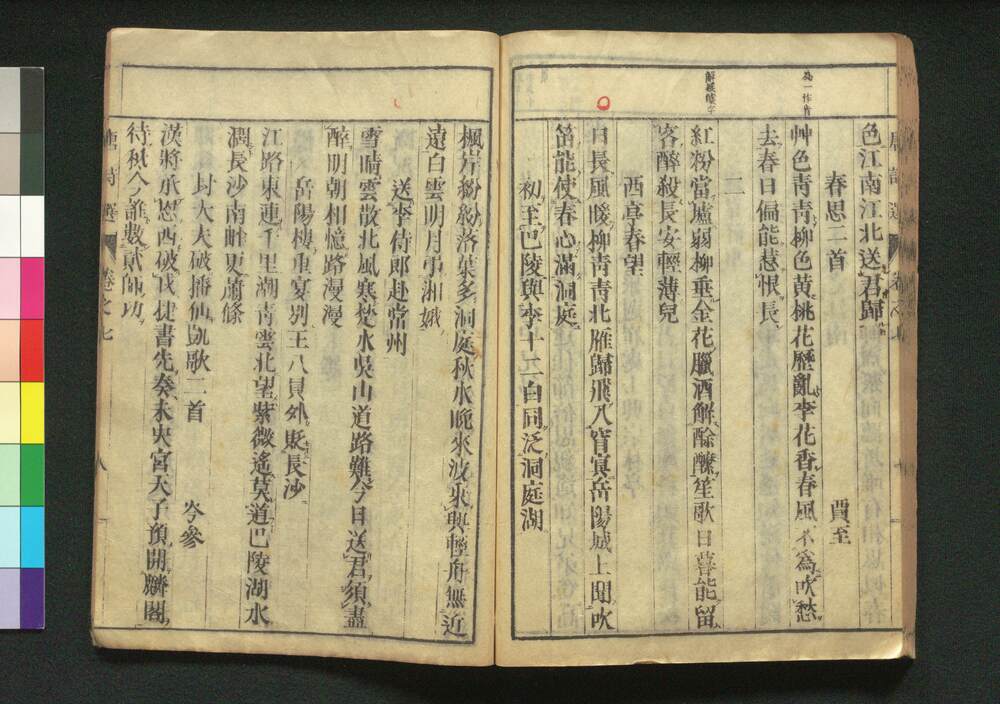 為一作
解
色江南江北送君歸
春思二首　賈至
艸色青青柳色黃桃花歷亂李花香春風不爲吹愁
去春日偏能惹恨長
二
紅粉當壚弱柳垂金花臘酒解酴醾笙歌日暮能留
客醉殺長安輕薄兒
西亭春望
日長風暖柳青青北雁歸飛入窅冥岳陽城上聞吹
笛能使春心滿洞庭
初至巴陵與李十二白同泛洞庭湖
唐詩選　卷之七
楓岸紛紛落葉多洞庭秋水晚來波乘興輕舟無近
遠白雲明月弔湘娥
送李侍郎赴常州
雪晴雲散北風寒楚水吳山道路難今日送君須盡
醉明朝相憶路漫漫
岳陽樓重宴別王八員外貶長沙
江路東連千里潮青雲北望紫微遙莫道巴陵湖水
濶長沙南畔更蕭條
封大夫破播仙凱歌二首　岑參
漢將承恩西破戎捷書先奏未央宮天子預開麟閣
待秖今誰數貳師功
唐詩選　卷之七　八